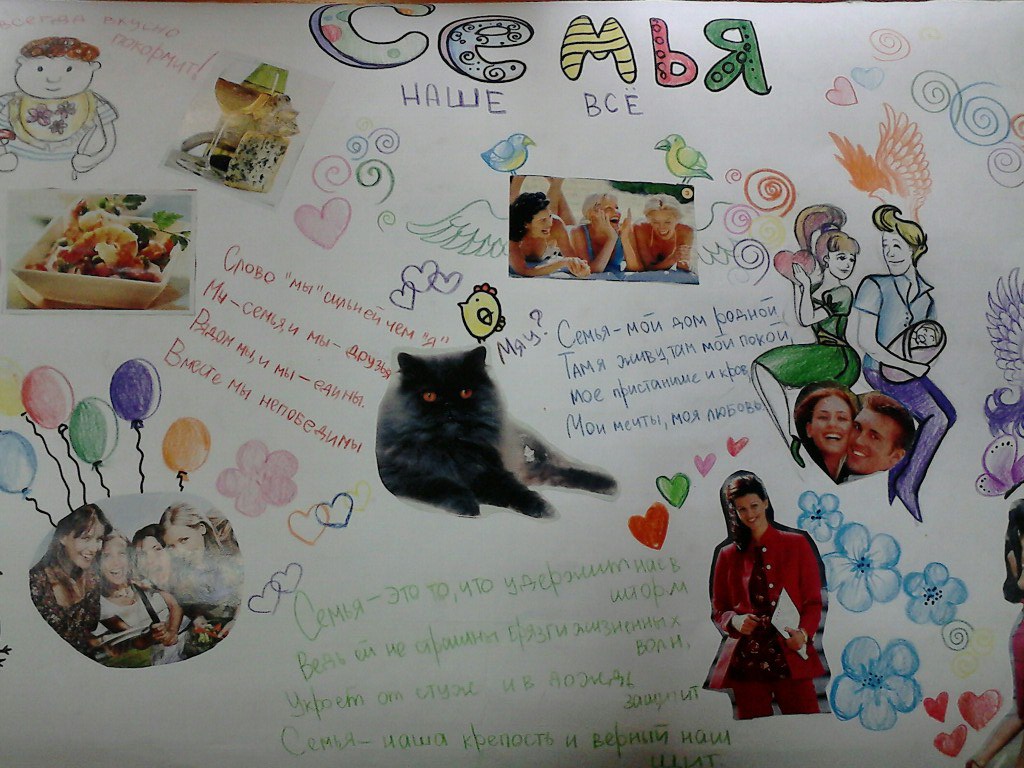 СЕМЬЯ
НАШЕ ВСЁ
ВСЕГДА ВКУСНО
ПОКОРМИТ!
Слово "мы" сильней чем "я"
Мы-семья, и мы-друзья
Рядом мы, и мы-едины.
Вместе мы непобедимы
Мяу?
Семья-мой дом родной
Там я живу, там мой покой,
мое пристанище и кров
Мои мечты, моя любовь.
Семья-это то, что удержит нас в
шторм
Ведь ей не страшны брязги жизненных
волн,
Укроет от стуж и в дождь
защитит
Семья-наша крепость и верный наш
щит